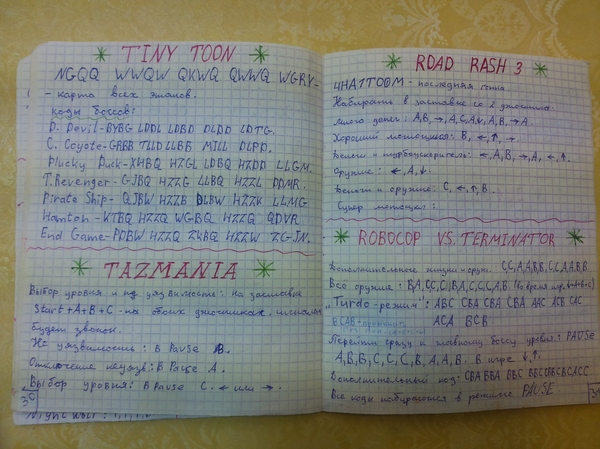 TINY TOON
NGQQ WWQW QKWQ QWWQ WGRY-
- карта всех этапов.
коды боссов:
D. Devil - BYBG LDDL LDBD DLDD LDTG.
C. Coyote - GRBB TLLD LLBB MILL DLPD.
Plucky Duck - XHBQ HZGL LDBQ HZDD LLGM.
T. Revenger - GJBQ HZZG LLBQ HZZL DDMR.
Pirate Ship - QJBW HZZB DLBW HZZK LLMG
Hamton - KTBQ HZZQ WGBQ HZZQ QDVR.
End Game - PDBW HZZQ ZKBQ HZZW ZGJN.
TAZMANIA
Выбор уровня и неуязвимость: на заставке
Start + A + B + C - на обоих джойстиках,
будет звонок.
Не уязвимость: В Pause B.
Отключение неуязв: В Pause A.
Выбор уровня: В Pause C. ← или →.
30
ROAD RASH 3
4HA1TOOM - последняя гонка
Набирать в заставке со 2 джостика
много денег: A, B, →, A, C, A, A, B, →, A.
Хороший мотоцикл: B, ←, ↑, →
Деньги и турбоускоритель: ←, A, B, →, A, ←, ↑.
Оружие: ←, A, ↓.
Деньги и оружие: C, ←, ↑, B.
Супер мотоцикл:
ROBOCOP VS. TERMINATOR
Дополнительные жизни + оруж: C, C, A, A, B, B, C, C, A, A, B, B
Всё оружие: B, A, C, C, C, B, A, C, C, A, B
"Turbo-режим": ABC CBA CBA CBA AAC ACB CAC
ACA BCB
Перейти сразу к главному боссу уровня: PAUSE
A, B, B, C, C, C, B, A, A, B. В игре ↓, ↑.
Дополнительный код: CBA BBA BBC BBC CBB CBC ACC
Все коды набираются в режиме PAUSE.